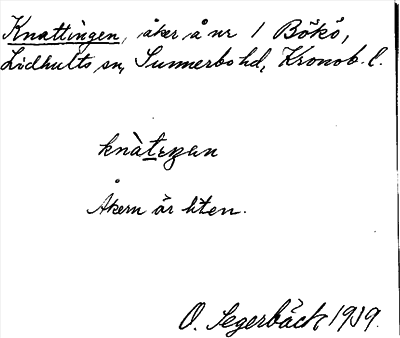 Knattingen, åker å nr 1 Bökö,
Lidhults sn, Sunnerbo hd, Kronob. l.
knàteŋan
Åkern är liten.
O. Segerbäck 1919.